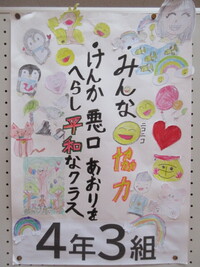 みんなニコニコ協力
・けんか 悪口 あおりを
へらし平和なクラス
4年3組